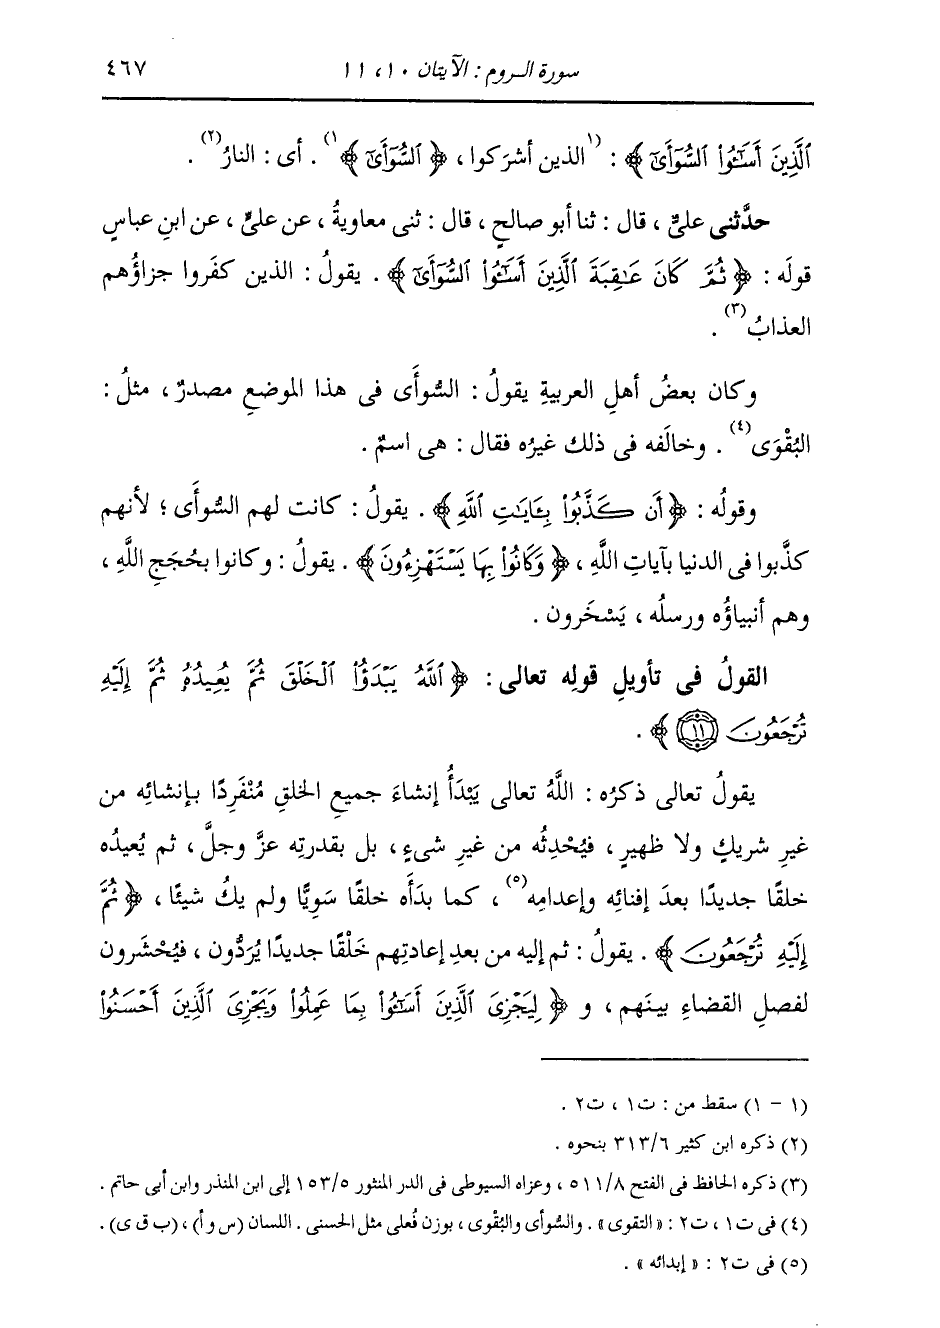 سورة الروم : الآيتان ١٠ ، ١١ ٤٦٧
ٱلَّذِينَ أَسَٰٓـُٔوا۟ ٱلسُّوٓأَىٰٓ ﴾ : (١ الذين أشركوا ، ﴿ ٱلسُّوٓأَىٰٓ ﴾ ١) . أى : النارُ(٢) .
حدَّثنى علىٌّ ، قال : ثنا أبو صالحٍ ، قال : ثنى معاويةُ ، عن علىٍّ ، عن ابنِ عباسٍ
قولَه : ﴿ ثُمَّ كَانَ عَٰقِبَةَ ٱلَّذِينَ أَسَٰٓـُٔوا۟ ٱلسُّوٓأَىٰٓ ﴾ . يقولُ : الذين كفَروا جزاؤُهم
العذابُ(٣) .
وكان بعضُ أهلِ العربيةِ يقولُ : السُّوأَى فى هذا الموضعِ مصدرٌ ، مثلُ :
البُقْوَى(٤) . وخالَفه فى ذلك غيرُه فقال : هى اسمٌ .
وقولُه : ﴿ أَن كَذَّبُوا۟ بِـَٔايَٰتِ ٱللَّهِ ﴾ . يقولُ : كانت لهم السُّوأَى ؛ لأنهم
كذَّبوا فى الدنيا بآياتِ اللَّهِ ، ﴿ وَكَانُوا۟ بِهَا يَسْتَهْزِءُونَ ﴾ . يقولُ : وكانوا بحُججِ اللَّهِ ،
وهم أنبياؤُه ورسلُه ، يَسْخَرون .
القولُ فى تأويلِ قولِه تعالى : ﴿ ٱللَّهُ يَبْدَؤُا۟ ٱلْخَلْقَ ثُمَّ يُعِيدُهُۥ ثُمَّ إِلَيْهِ
تُرْجَعُونَ ١١ ﴾ .
يقولُ تعالى ذكرُه : اللَّهُ تعالى يَبْدَأُ إنشاءَ جميعِ الخلقِ مُنْفَرِدًا بإنشائِه من
غيرِ شريكٍ ولا ظهيرٍ ، فيُحْدِثُه من غيرِ شىءٍ ، بل بقدرتِه عزَّ وجلَّ ، ثم يُعيدُه
خلقًا جديدًا بعدَ إفنائِه وإعدامِه(٥) ، كما بدَأَه خلقًا سَوِيًّا ولم يكُ شيئًا ، ﴿ ثُمَّ
إِلَيْهِ تُرْجَعُونَ ﴾ . يقولُ : ثم إليه من بعدِ إعادتِهم خَلْقًا جديدًا يُرَدُّون ، فيُحْشَرون
لفصلِ القضاءِ بينَهم ، و ﴿ لِيَجْزِىَ ٱلَّذِينَ أَسَٰٓـُٔوا۟ بِمَا عَمِلُوا۟ وَيَجْزِىَ ٱلَّذِينَ أَحْسَنُوا۟
(١ - ١) سقط من : ت١ ، ت٢ .
(٢) ذكره ابن كثير ٣١٣/٦ بنحوه .
(٣) ذكره الحافظ فى الفتح ٥١١/٨ ، وعزاه السيوطى فى الدر المنثور ١٥٣/٥ إلى ابن المنذر وابن أبى حاتم .
(٤) فى ت١ ، ت٢ : « التقوى » . والسُّوأى والبُقْوى ، بوزن فُعلى مثل الحسنى . اللسان (س و أ) ، (ب ق ى) .
(٥) فى ت٢ : « إبدائه » .